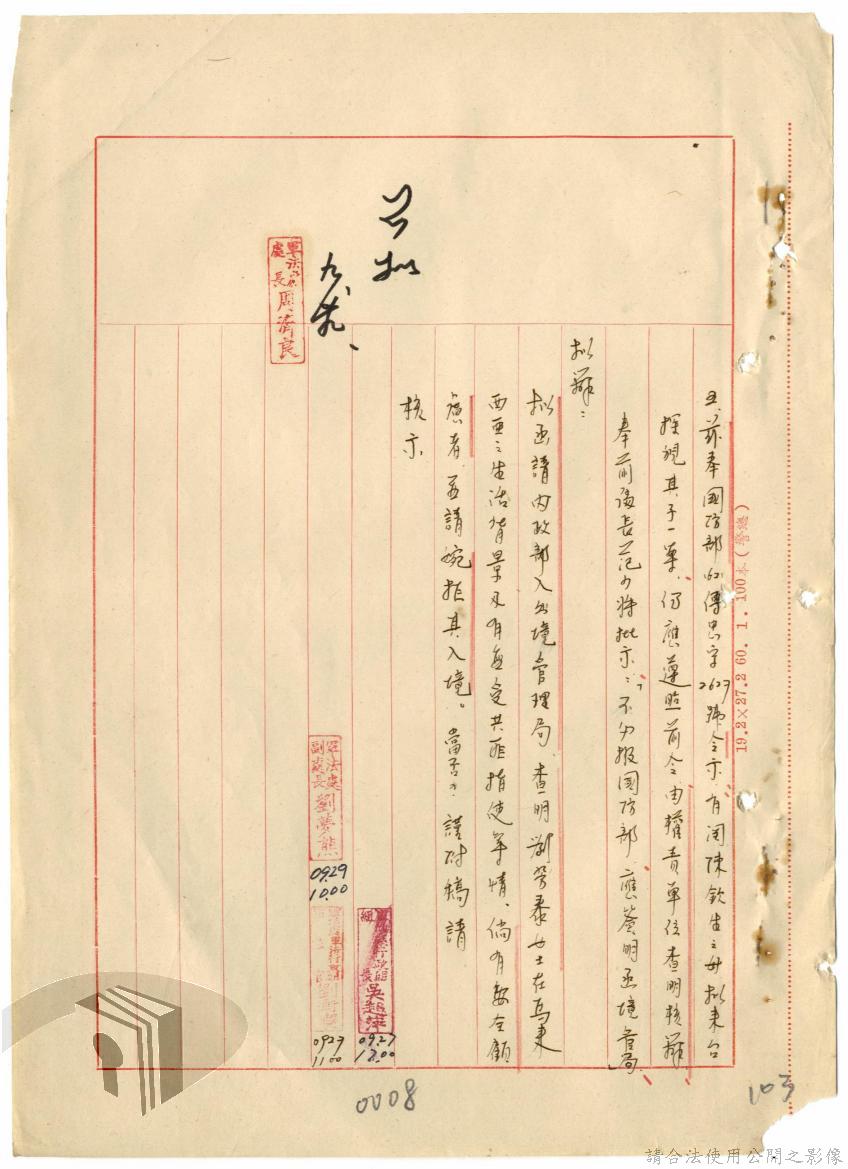 五、茲奉國防部62傳忠字2627號令示：有関陳欽生之母拟来台
探視其子一案，仍應遵照前令，由權責單位查明核辦
奉前處長范少將批示：「不必报國防部，應簽明函境管局」
拟辦：
拟函請內政部入出境管理局，查明劉芳泰女士在馬来
西亚之生活背景及有無受共匪指使等情，倘有安全顧
慮者，並請婉拒其入境。當否？謹附稿請
核示
軍法處
副處長劉夢熊
0929
10.00
組長吳超萍
09.27
17.00
0927
11.00
軍法處
處長周濟良
19.2×27.2 60. 1. 100本(警總)
0008
103
請合法使用公開之影像